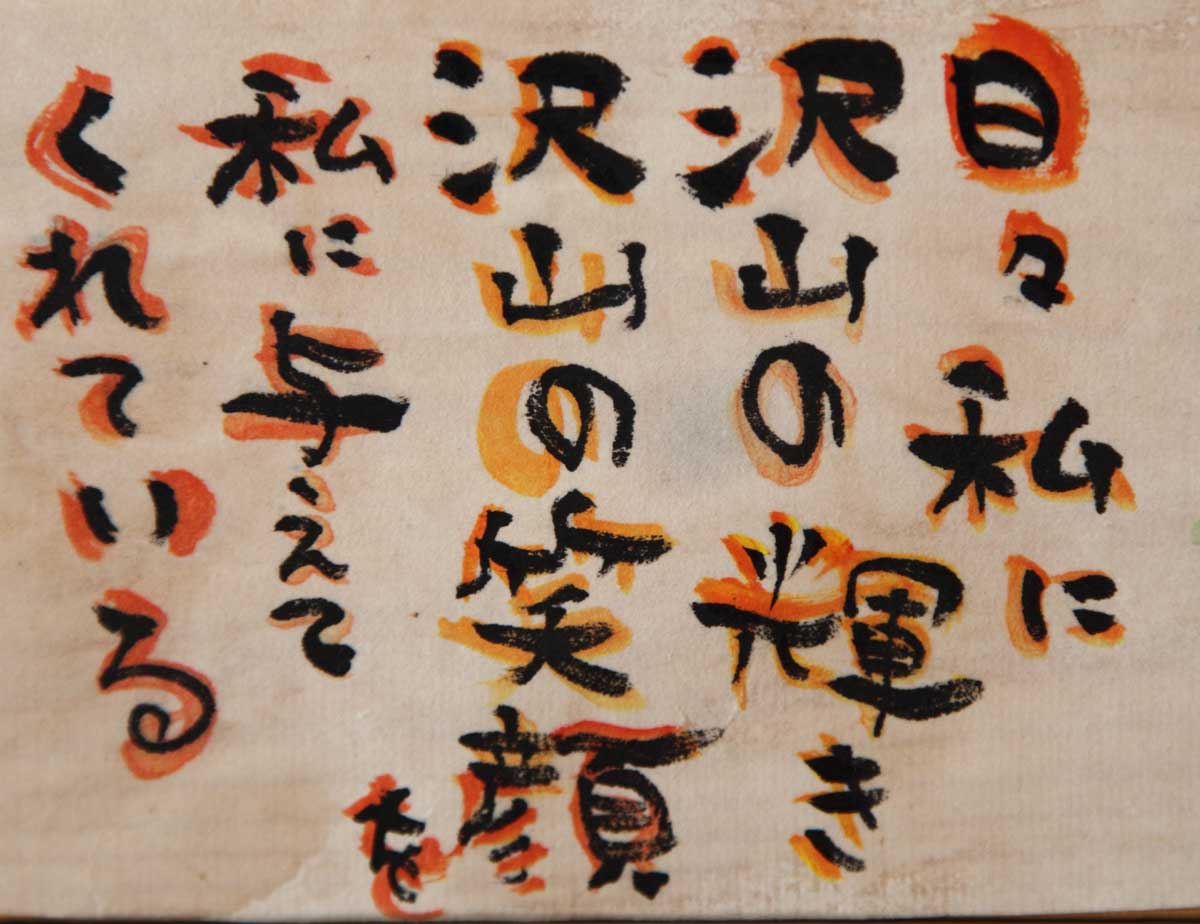 日々私に
沢山の輝き
沢山の笑顔を
私に与えて
くれている